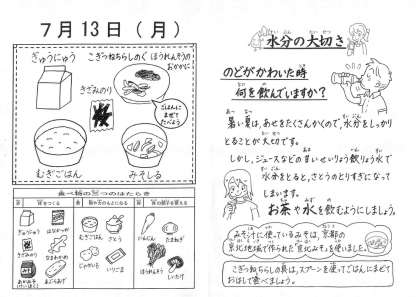 7月13日（月）
ぎゅうにゅう
こぎつねちらしのぐ
ほうれんそうの
おかかに
きざみのり
ごはんに
まぜて
たべよう
むぎごはん
みそしる
食べ物の三つのはたらき
ぎゅうにゅう
はなかつお
むぎごはん
さとう
にんじん
たまねぎ
きざみのり
なまわかめ
じゃがいも
いりごま
ほうれんそう
しいたけ
あぶらあげ
水分の大切さ
のどがかわいた時
何を飲んでいますか？
暑い夏は、あせをたくさんかくので、水分をしっかり
とることが大切です。
しかし、ジュースなどの甘いせいりょう飲りょう水で
水分をとると、さとうのとりすぎになって
しまいます。
お茶や水を飲むようにしましょう。
みそしるに使っているみそは、京都の
京北地域で作られた「京北みそ」を使いました。
こぎつねちらしの具は、スプーンを使ってごはんにまぜて
おはしで食べましょう。